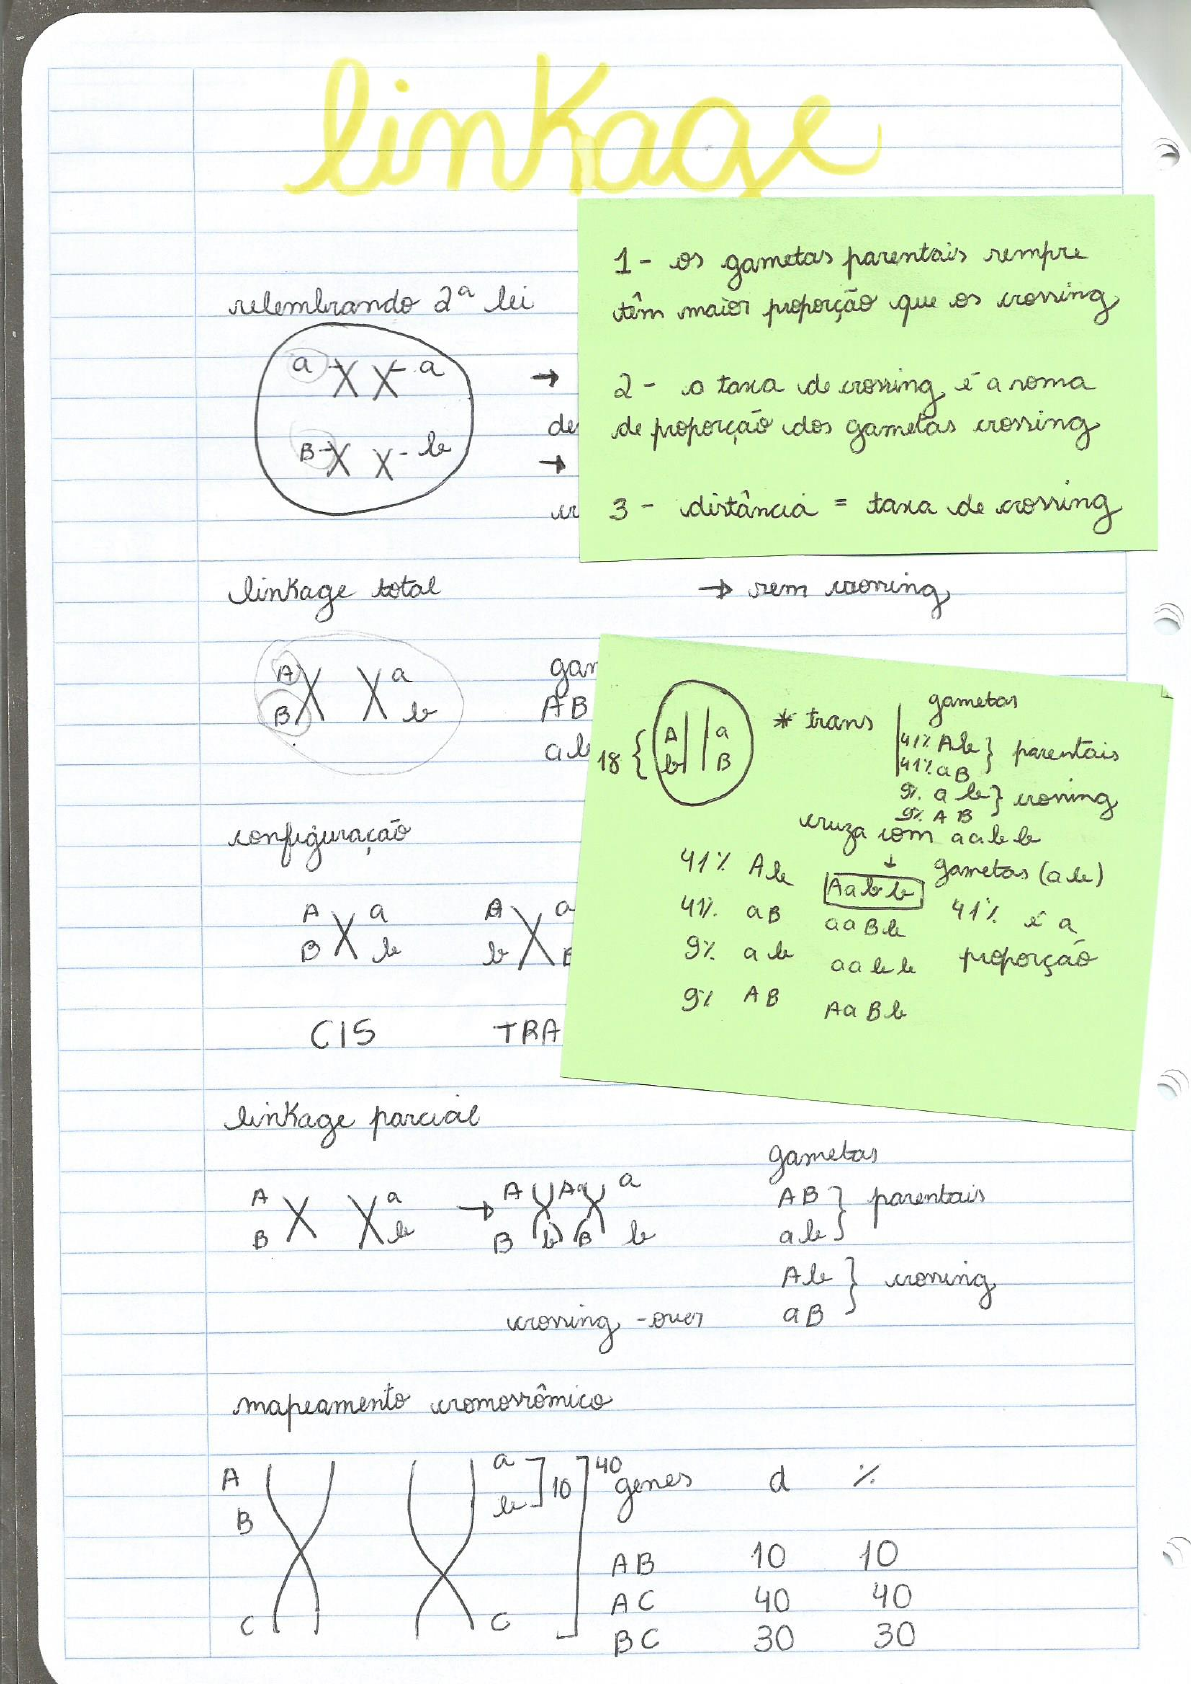 linkage
1 - os gametas parentais sempre
têm maior proporção que os crossing
2 - a taxa de crossing é a soma
de proporção dos gametas crossing
3 - distância = taxa de crossing
relembrando 2ª lei
a a →
de
B b →
cr
linkage total → sem crossing
A a gam
B b AB
ab
18 { A a * trans gametas
b B 41% Ab } parentais
41% aB
9% ab } crossing
9% AB
cruza com aabb
↓ gametas (ab)
41% Ab Aabb
41% aB aaBb 41% é a
9% ab aabb proporção
9% AB AaBb
configuração
A a A a
B b b B
CIS TRA
linkage parcial
gametas
A a → A A a a AB } parentais
B b B b B b ab
Ab } crossing
crossing-over aB
mapeamento cromossômico
A a ] 10 ] 40 genes d %
B b
AB 10 10
AC 40 40
C C BC 30 30